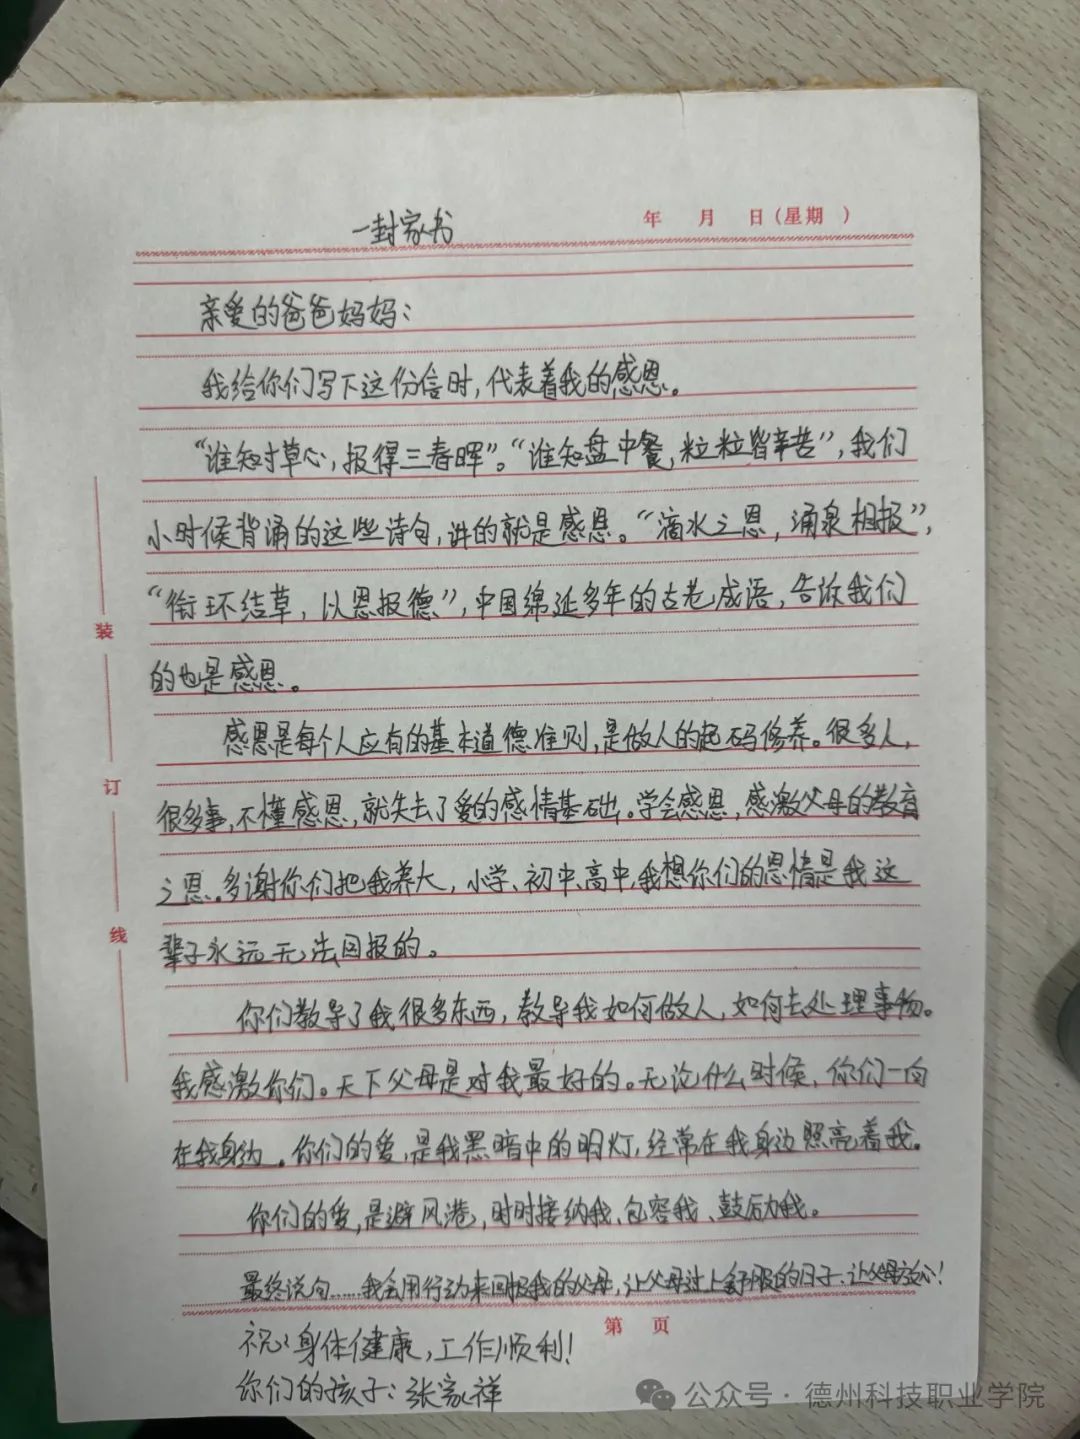 一封家书
年 月 日(星期 )
亲爱的爸爸妈妈:
我给你们写下这份信时,代表着我的感恩。
“谁知寸草心,报得三春晖”。“谁知盘中餐,粒粒皆辛苦”,我们
小时候背诵的这些诗句,讲的就是感恩。“滴水之恩,涌泉相报”,
“衔环结草,以恩报德”,中国绵延多年的古老成语,告诉我们
的也是感恩。
感恩是每个人应有的基本道德准则,是做人的起码修养。很多人,
很多事,不懂感恩,就失去了爱的感情基础。学会感恩,感激父母的教育
之恩。多谢你们把我养大,小学、初中、高中,我想你们的恩情是我这
辈子永远无法回报的。
你们教导了我很多东西,教导我如何做人,如何去处理事物。
我感激你们。天下父母是对我最好的。无论什么时候,你们一向
在我身边。你们的爱,是我黑暗中的明灯,经常在我身边照亮着我。
你们的爱,是避风港,时时接纳我、包容我、鼓励我。
最终说句……我会用行动来回报我的父母,让父母过上舒服的日子、让父母放心!
第 页
祝:身体健康,工作顺利!
你们的孩子:张家祥
装
订
线
公众号·德州科技职业学院